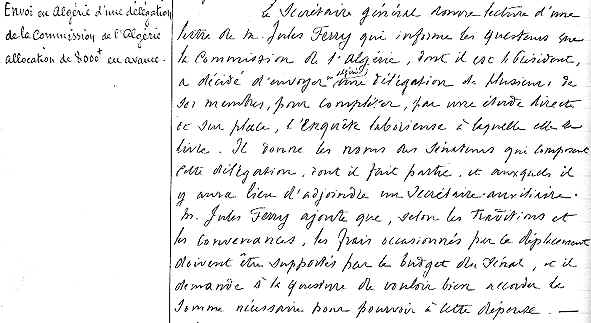 Envoi en Algérie d'une délégation
de la Commission de l'Algérie
allocation de 8000f en avance.
Le Secrétaire général donne lecture d'une
lettre de M. Jules Ferry qui informe les Questeurs que
la Commission de l'Algérie, dont il est le Président,
a décidé d'envoyer en Algérie une délégation de plusieurs de
ses membres, pour compléter, par une étude directe
et sur place, l'Enquête laborieuse à laquelle elle se
livre. Il donne les noms des Sénateurs qui composent
cette délégation, dont il fait partie, et auxquels il
y aura lieu d'adjoindre un Secrétaire-auxiliaire.
M. Jules Ferry ajoute que, selon les traditions et
les convenances, les frais occasionnés par le déplacement
doivent être supportés par le budget du Sénat, et il
demande à la questure de vouloir bien accorder la
somme nécessaire pour pourvoir à cette dépense. —